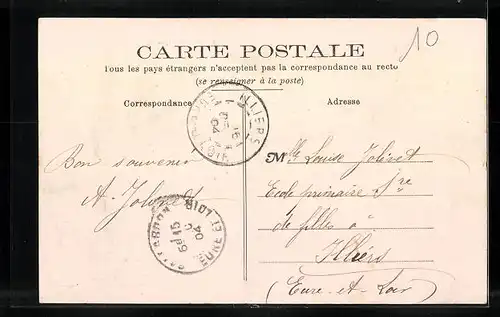 10
CARTE POSTALE
Tous les pays étrangers n'acceptent pas la correspondance au recto
(se renseigner à la poste)
Correspondance
Adresse
ILLIERS
Bon souvenir
A. Jolivet
EURE ET LOIR
Mlle Louise Jolivet
Ecole primaire Sre
de filles à
Illiers
(Eure-et-Loir)